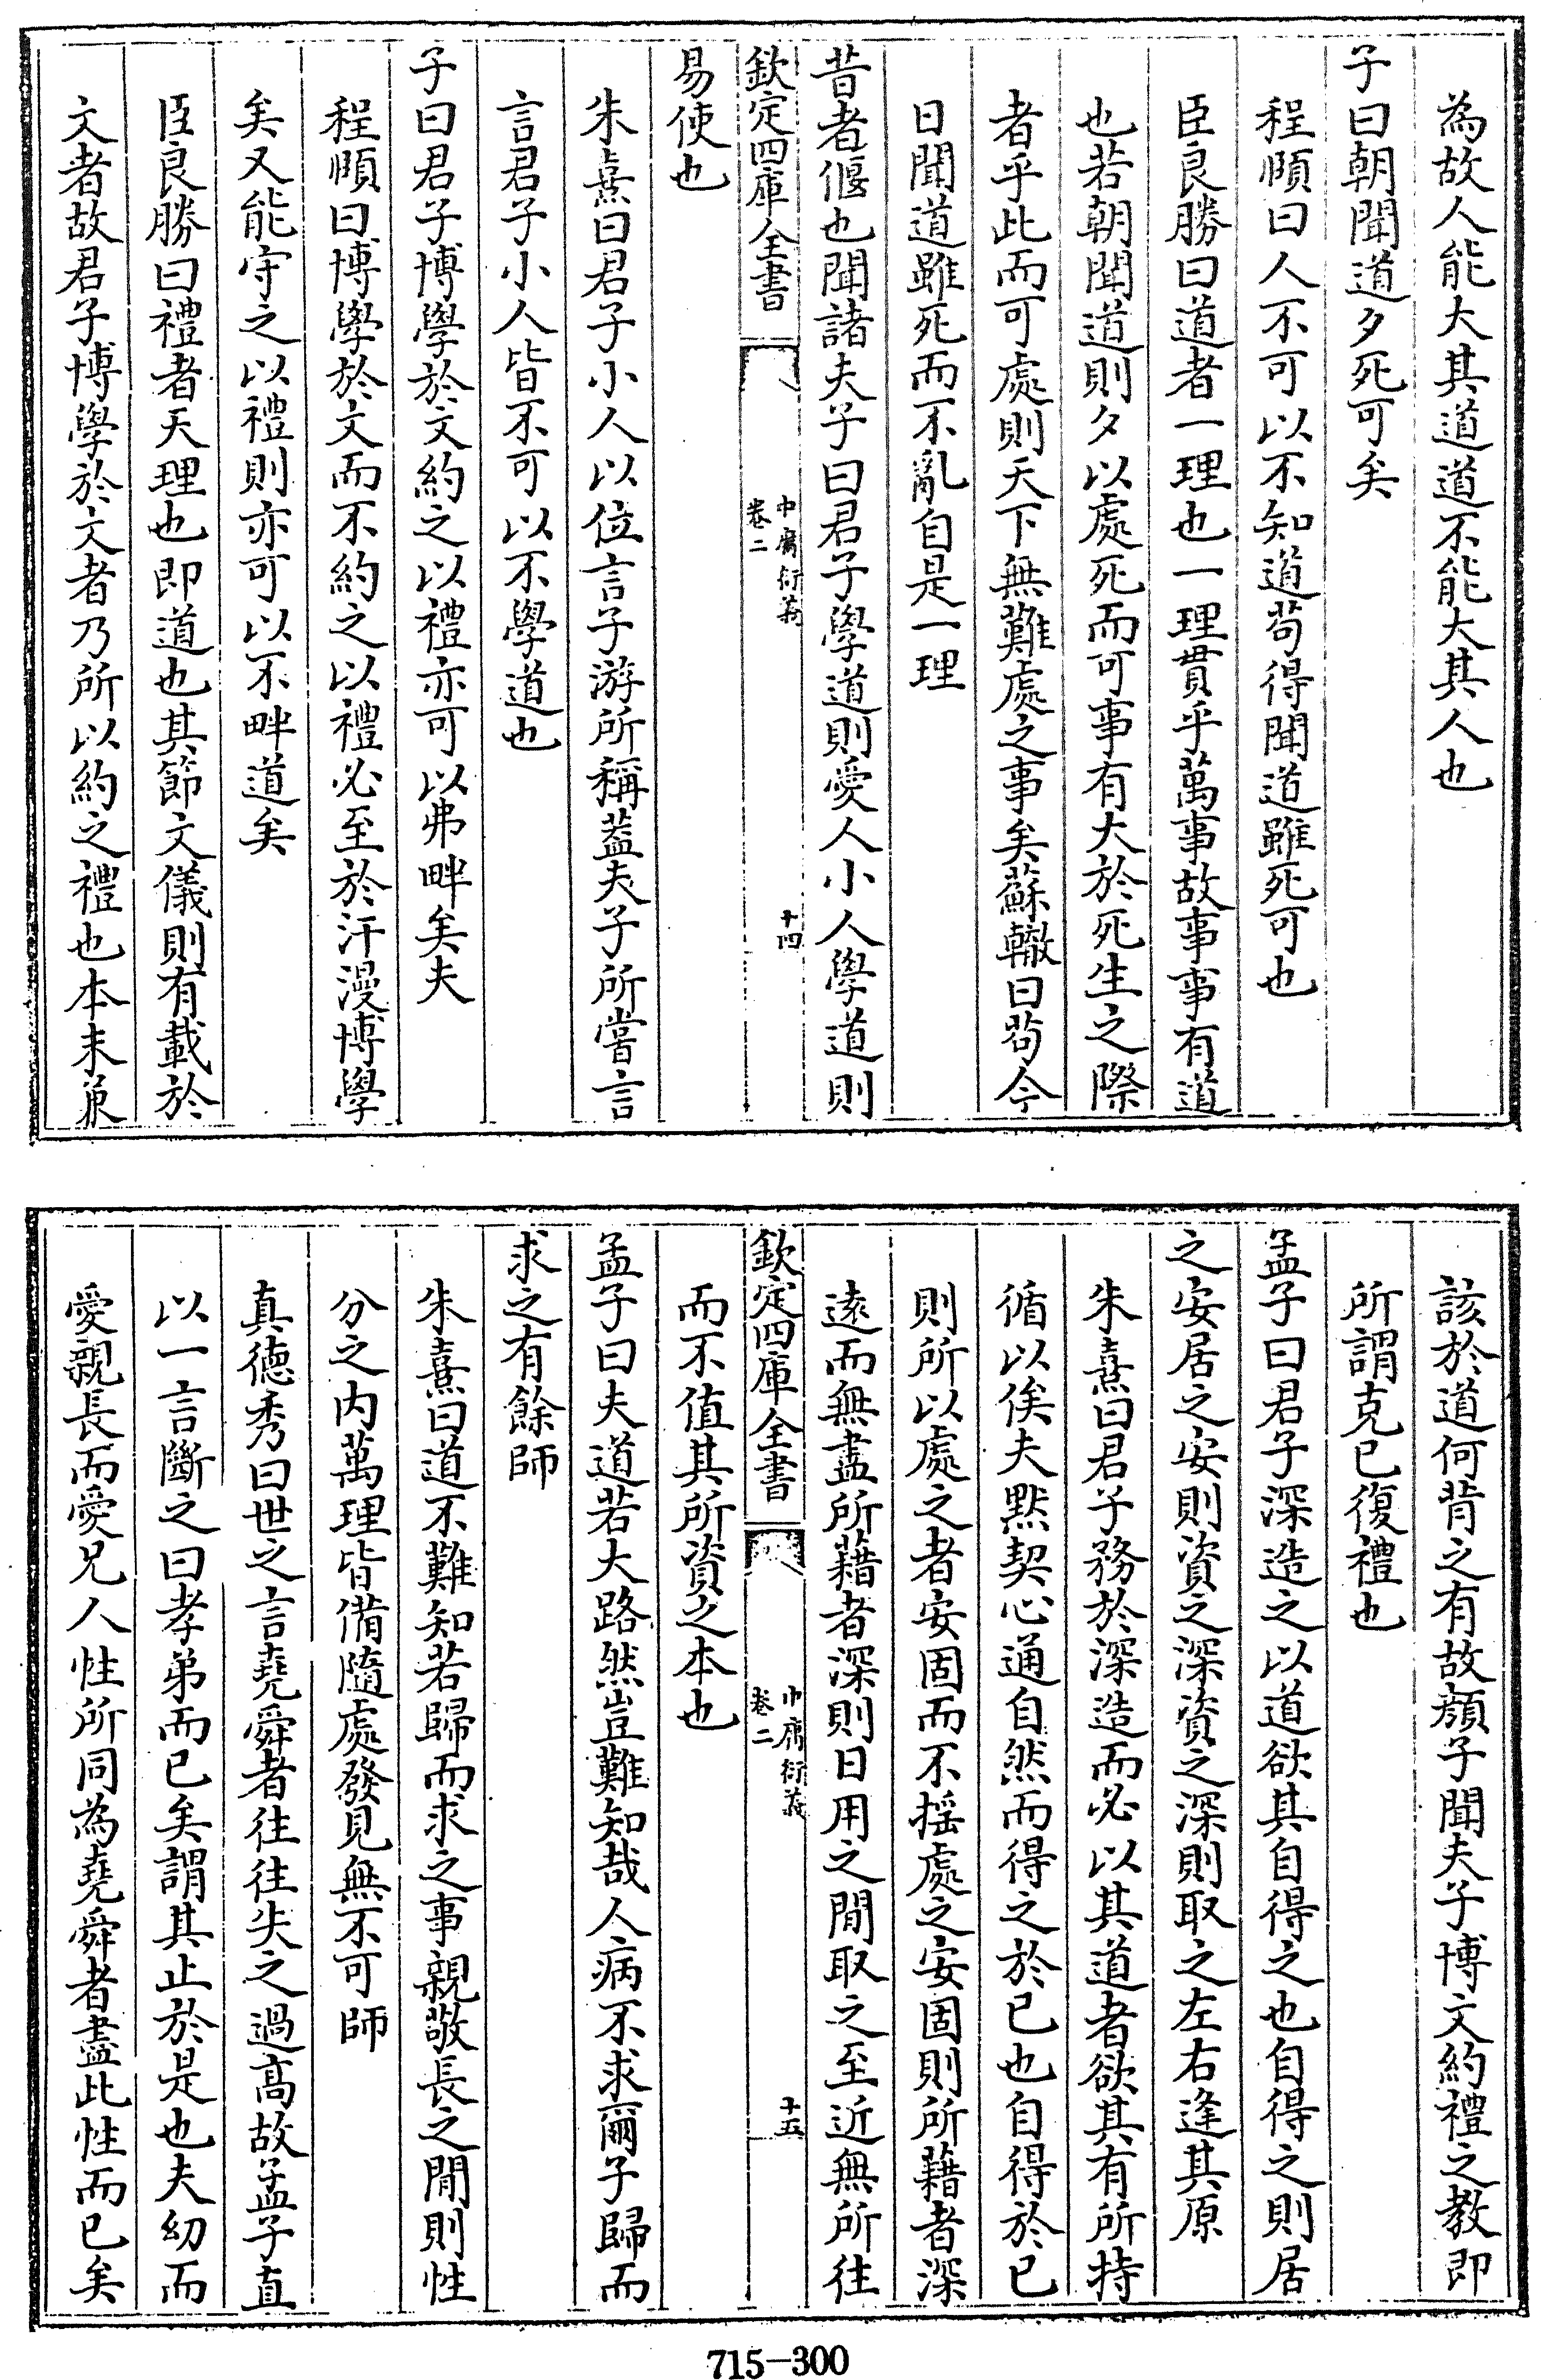 為故人能大其道道不能大其人也
子曰朝聞道夕死可矣
程頤曰人不可以不知道苟得聞道雖死可也
臣良勝曰道者一理也一理貫乎萬事故事事有道
也若朝聞道則夕以處死而可事有大於死生之際
者乎此而可處則天下無難處之事矣蘇轍曰苟今
日聞道雖死而不亂自是一理
昔者偃也聞諸夫子曰君子學道則愛人小人學道則
欽定四庫全書
中庸衍義
卷二
十四
易使也
朱熹曰君子小人以位言子游所稱葢夫子所嘗言
言君子小人皆不可以不學道也
子曰君子博學於文約之以禮亦可以弗畔矣夫
程頤曰博學於文而不約之以禮必至於汗漫博學
矣又能守之以禮則亦可以不畔道矣
臣良勝曰禮者天理也即道也其節文儀則有載於
文者故君子博學於文者乃所以約之禮也本末兼
該於道何背之有故顏子聞夫子博文約禮之教即
所謂克已復禮也
孟子曰君子深造之以道欲其自得之也自得之則居
之安居之安則資之深資之深則取之左右逢其原
朱熹曰君子務於深造而必以其道者欲其有所持
循以俟夫黙契心通自然而得之於已也自得於已
則所以處之者安固而不揺處之安固則所藉者深
遠而無盡所藉者深則日用之間取之至近無所往
欽定四庫全書
中庸衍義
卷二
十五
而不值其所資之本也
孟子曰夫道若大路然豈難知哉人病不求爾子歸而
求之有餘師
朱熹曰道不難知若歸而求之事親敬長之間則性
分之内萬理皆備隨處發見無不可師
真德秀曰世之言堯舜者往往失之過高故孟子直
以一言斷之曰孝弟而已矣謂其止於是也夫幼而
愛親長而愛兄人性所同為堯舜者盡此性而已矣
715-300